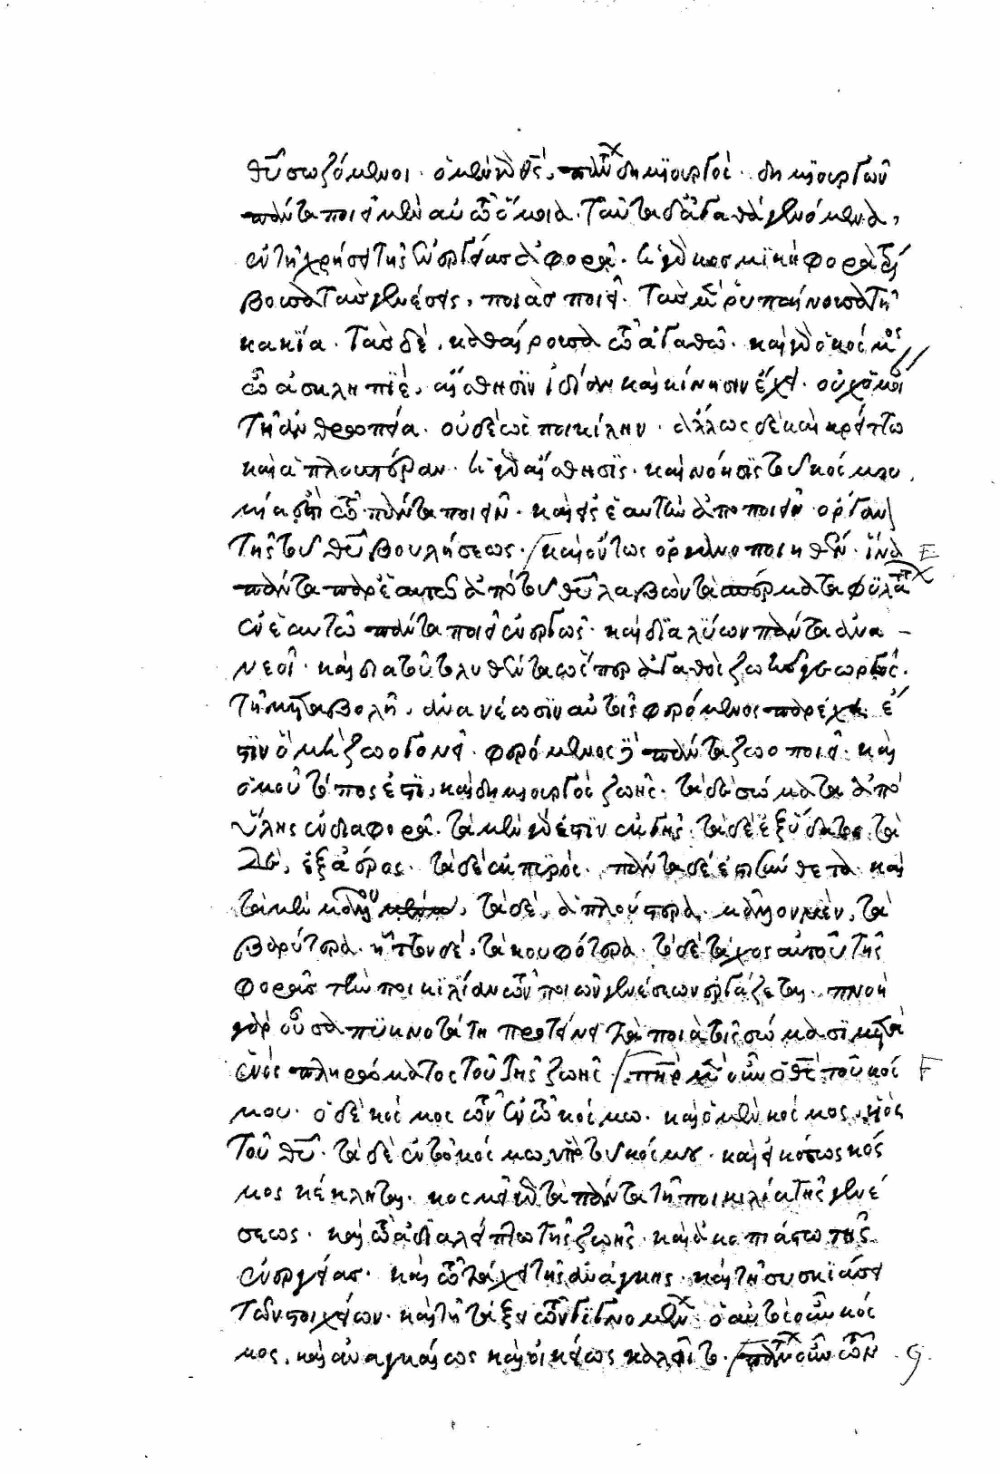 θῡ σωζόμενοι· ὁ μὲν γὰρ θς̄, πάντων δημϊουργὸς· δημϊουργῶν
πάντα ποιεῖ μὲν αὐτῶ ὅμοια. ταῦτα δ' ἀγαθὰ γενόμενα,
ἐν τῆ χρήσει τῆς ἐνεργείας ἀφορᾶ. ἡ γὰρ κοσμϊκὴ φορὰ τρί
βουσα τὰς γενέσεις, ποιὰς ποιεῖ. τὰς μὲν ῥυπαίνουσα τῆ
κακΐα. τὰς δὲ, καθαίρουσα τῶ ἀγαθῶ. καὶ γὰρ ὁ κόσμος
ὦ ἀσκληπϊὲ, αἴσθησϊν ἰδίαν καὶ κίνησιν ἔχει. οὐχ ὁμοί
τῆ ἀνθρωπεία. οὐδὲ ὡς ποικίλην. ἄλλως δὲ καὶ κρείττω
καὶ ἁπλουστέραν. ἡ γὰρ αἴσθησϊς καὶ νόησϊς τοῦ κόσμου,
μία ἐστὶ τῶ πάντα ποιεῖν. καὶ εἰς ἑαυτὴν ἀποποιεῖν. ὄργαν
τῆς τοῦ θῡ βουλήσεως. καὶ οὕτως ὀργανοποιηθὲν. ἵνα E
πάντα παρ' ἑαυτῶ ἀπὸ τοῦ θῡ λαβὼν τὰ σπέρματα φϋλάττων
ἐν ἑαυτῶ πάντα ποιεῖ ἐνεργῶς. καὶ διαλϋων πάντα ἀνα-
νεοῖ. καὶ διατοῦτο λυθέντα ὥσπερ ἀγαθὸς ζωῆς γεωργὸς.
τῆ μεταβολῆ, ἀνανέωσϊν αὐτοῖς φερόμενος παρέχει. ἔ
στϊν ὃ μὴ ζωογονεῖ. φερόμενος δὲ πάντα ζωοποιεῖ. καὶ
ὁμοῦ τόπος ἐστϊ, καὶ δημιουργὸς ζωῆς. τὰ δὲ σώματα ἀπὸ
ὕλης ἐν διαφορᾶ. τὰ μὲν γάρ ἐστϊν ἐκ γῆς. τὰ δὲ ἐξ ὕδατος. τὰ
δὲ, ἐξ ἀέρος. τὰ δὲ ἐκ πυρὸς. πάντα δέ ἐστι σύνθετα. καὶ
τὰ μὲν μᾶλλον, τὰ δὲ, ἁπλούστερα. μᾶλλον μὲν, τὰ
βαρύτερα. ἧττον δὲ, τὰ κουφότερα. τὸ δὲ τάχος αὐτοῦ τῆς
φορᾶς τὴν ποικϊλίαν τῶν ποιῶν γενέσεων ἐργάζεται. πνοὴ
γὰρ οὖσα πϋκνοτάτη προτείνει τὰ ποιὰ τοῖς σώμασϊ μετὰ
ἑνὸς πληρώματος τοῦ τῆς ζωῆς. πηρ̄ μὲν οὖν ὁ θς̄ τοῦ κόσ F
μου. ὁ δὲ κόσμος τῶν ἐν τῶ κόσμω. καὶ ὁ μὲν κόσμος, υἱὸς
τοῦ θῡ. τὰ δὲ ἐν τῶ κόσμω, ὑπὸ τοῦ κόσμου. καὶ εἰκότως κόσ
μος κέκληται. κοσμεῖ γὰρ τὰ πάντα τῆ ποικιλία τῆς γενέ
σεως. καὶ τῶ ἀδιαλείπτω τῆς ζωῆς. καὶ ἀκοπιάστω τῆς
ἐνεργείας. καὶ τῶ τάχει τῆς ἀνάγκης. καὶ τῆ συσκϊάσει
τῶν στοιχείων. καὶ τῆ τάξει τῶν γϊγνομένων. ὁ αὐτὸς οὖν κόσ
μος, καὶ ἀναγκαίως καὶ οἰκείως καλοῖτο. πάντων οὖν τῶν G